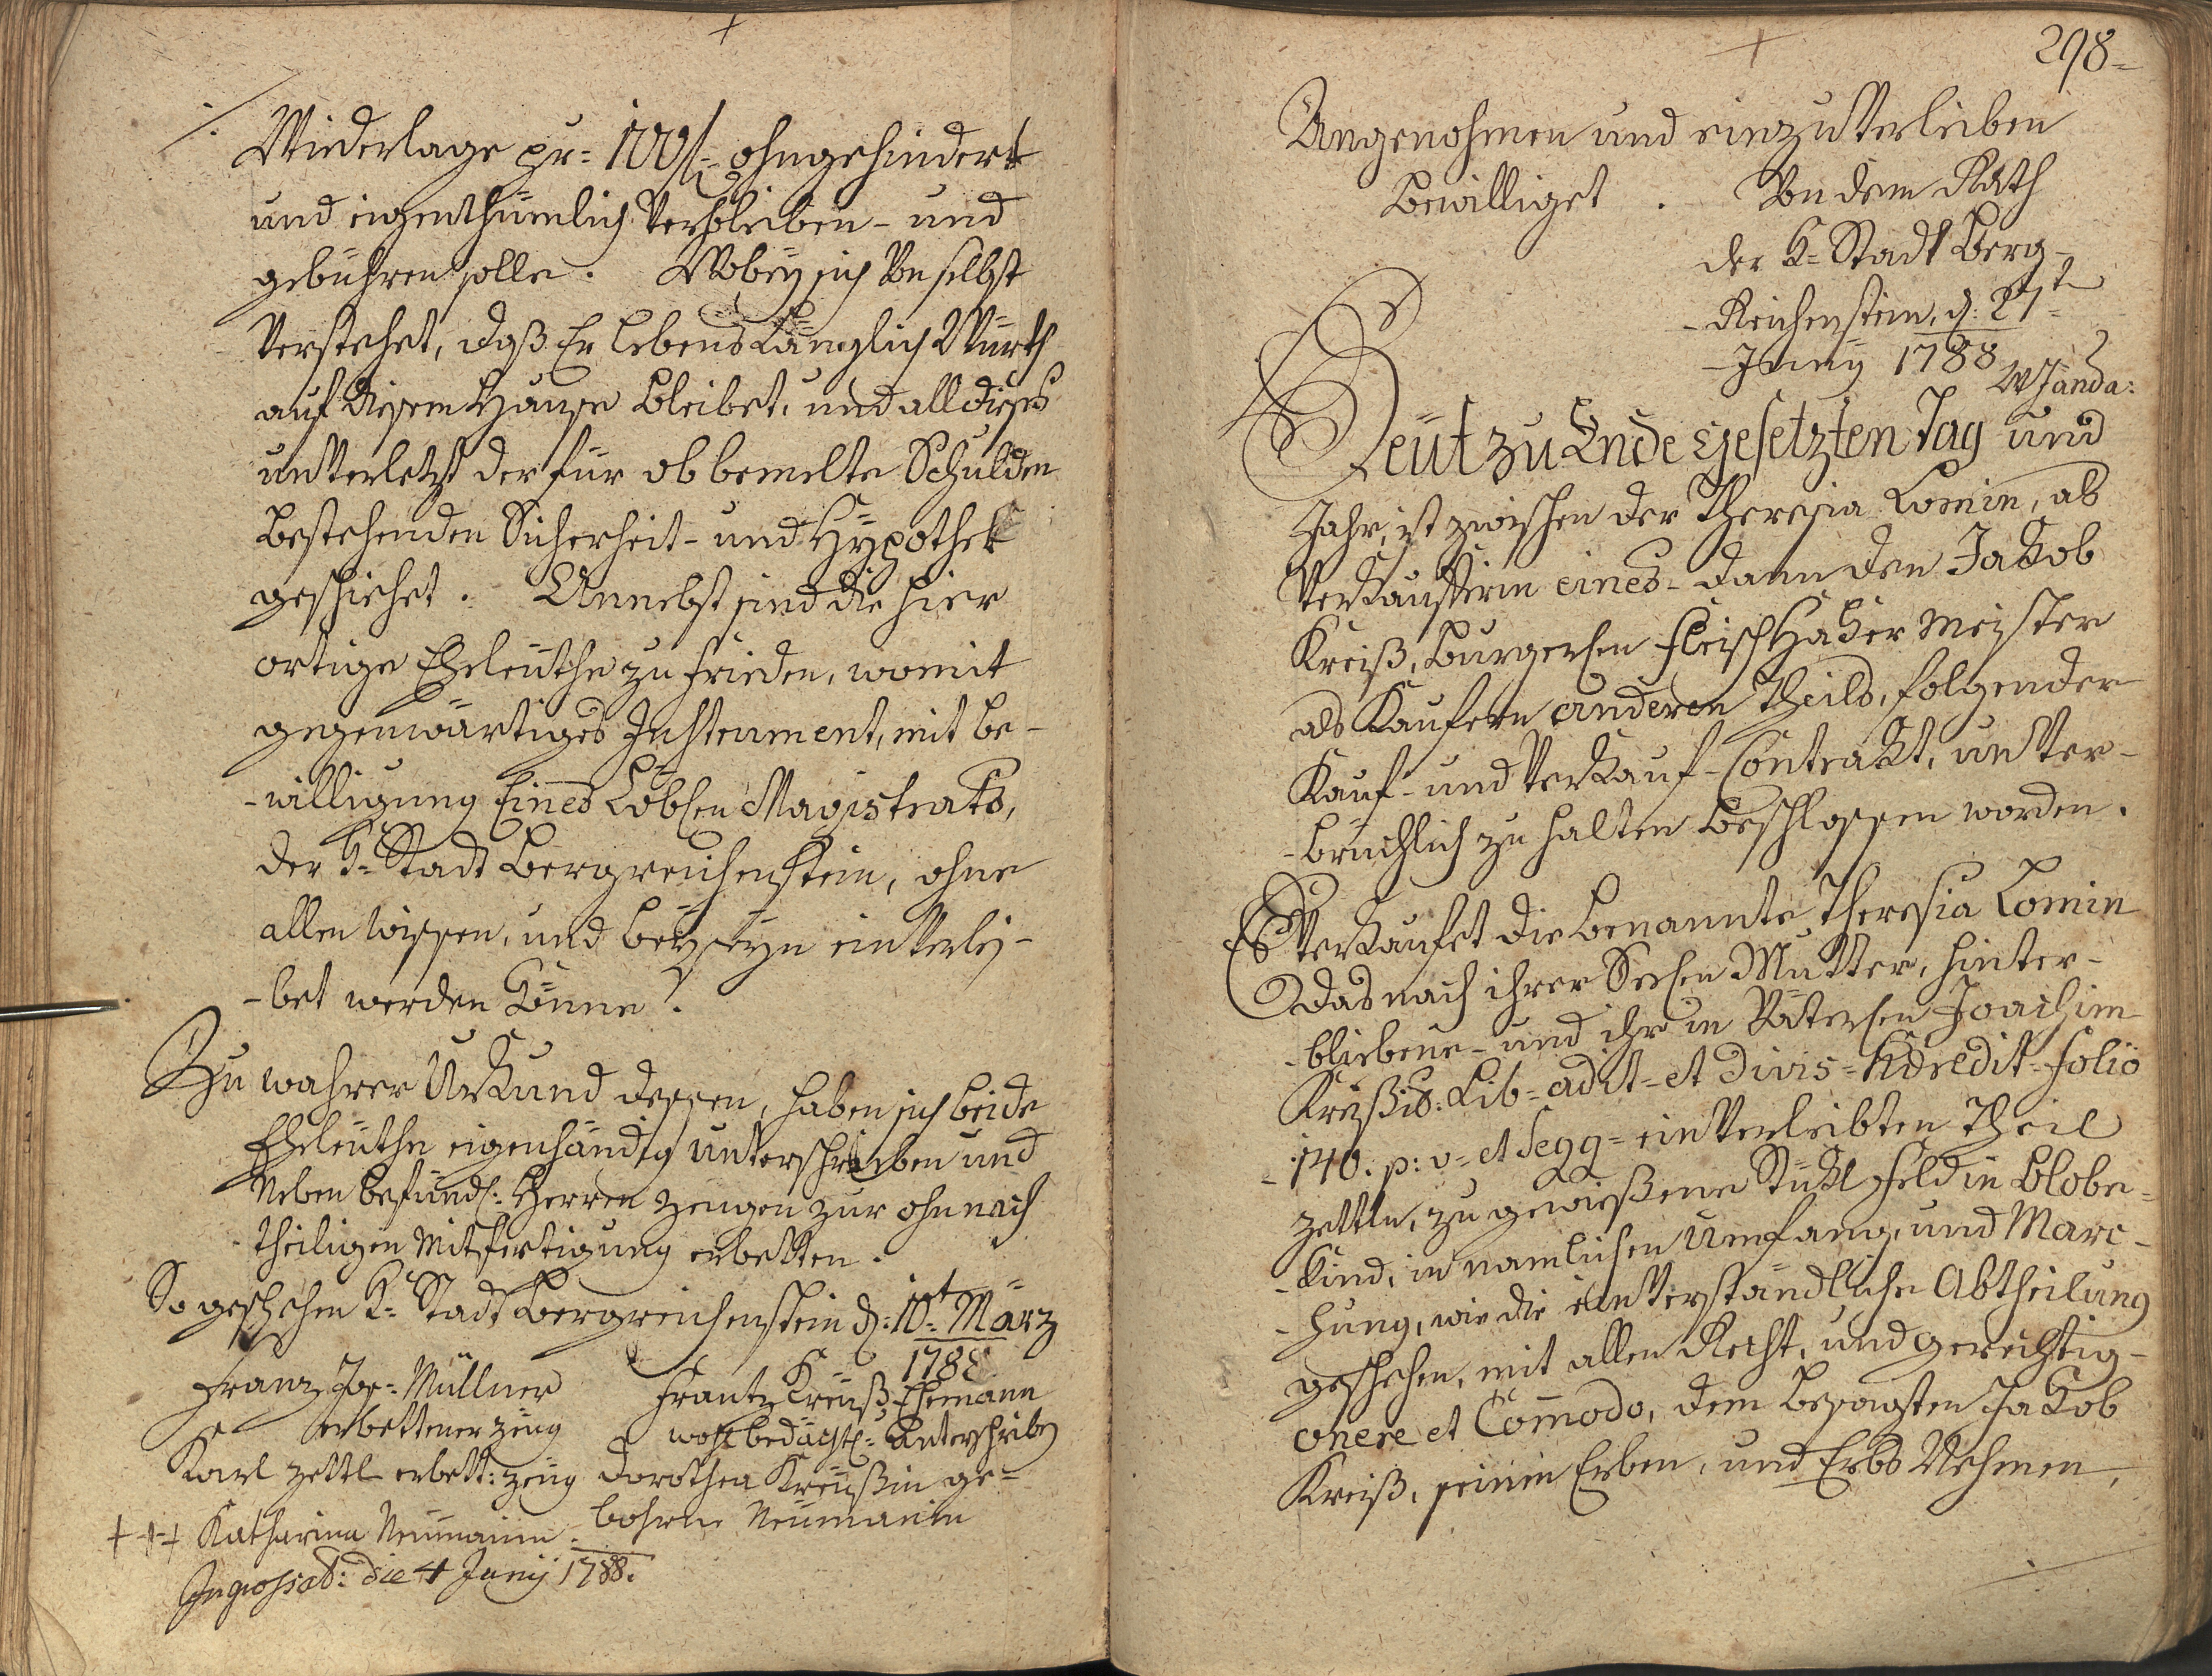 Wiederlage pr= 100 f= ohngehindert
und eigenthümlich Verbleiben - und
gebühren solle. Wobey sich Von selbst
Verstehet, daß Er lebens Länglich Würth
auf diesem Hause bleibet, und all dieses
unVerletzt der für obbemelte Schulden
bestehenden Sicherheit - und Hypothek
geschiehet. Annebst sind die hier
ortige Eheleuthe zu frieden, womit
gegenwärtiges Instrument, mit be-
-willigung Eines Löblen Magistrats,
der K= Stadt Bergreichenstein, ohne
allen wissen, und beyseyn einVerlei-
-bet werden könne.
Zu wahrer Urkund dessen, haben sich beide
Eheleuthe eigenhändig unterschrieben und
Neben befindl: Herren Zeugen zur ohnnach
-theiligen Mitfertigung erbetten.
So geschehen K= Stadt Bergreichenstein d: 10t März
1788
Franz Jos= Müllner Frantz Kreuß Ehemann
erbettener zeug wohlbedächtl: Unterschriben
Karl Zettl erbett: zeug Dorothea Kreußin ge=
+++ Katharina Neumanin bohrne Neumanin
Ingrossat: die 4 Junij 1788.
298=
Angenohmen und einzuVerleiben
bewilliget. Von dem Rath
der K= Stadt Berg-
-Reichenstein, d: 27t=
Juny 1788
WJanda:
Heüt zu Ende Gesetzten Tag und
Jahr, ist zwischen der Theresia Lomin, als
Verkaufferin eines - dann den Jakob
Kreiß, burgerlen Fleischhaker Meister
als Kaufern anderen Theils, folgender
Kauf - und Verkauf-Contrakt, unVer-
-brüchlich zu halten beschlossen worden.
Es Verkaufet die benannte Theresia Lomin
das nach ihrer Seelen Mutter, hinter-
-bliebene - und ihr in Väterlen Joachim
Kreißis: Lib= adit= et Divis= Hdredit= folio
140. p: v= et segg= einVerleibten Theil
zettln, zu gewießene Stükl Feld in Globe-
-kind, in namlichen Umfang, und Marc-
-hung, wie die einVerständliche Abtheilung
geschehen, mit allen Recht, und gerechtig-
onere et Com̄odo, dem besagten Jakob
Kreiß, seinen Erben, und Erbs Nehmen,